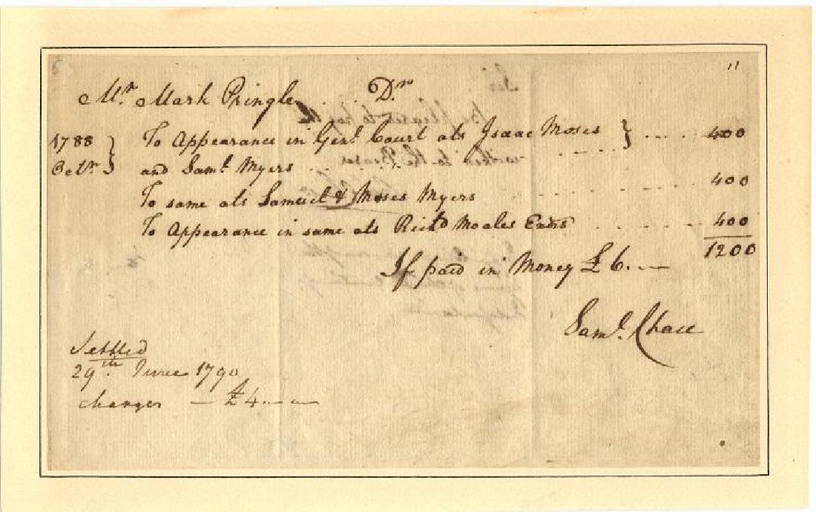 11
Mr. Mark Pringle Dr.
1788 } To Appearance in Genl. Court ats Isaac Moses } .... 400
Octr. } and Saml. Myers
To same ats Samuel & Moses Myers ...... 400
To Appearance in same ats Richd Moales Exrs ...... 400
1200
If paid in Money £6.—
Saml. Chase
Settled
29th. June 1790
charges — £4.—